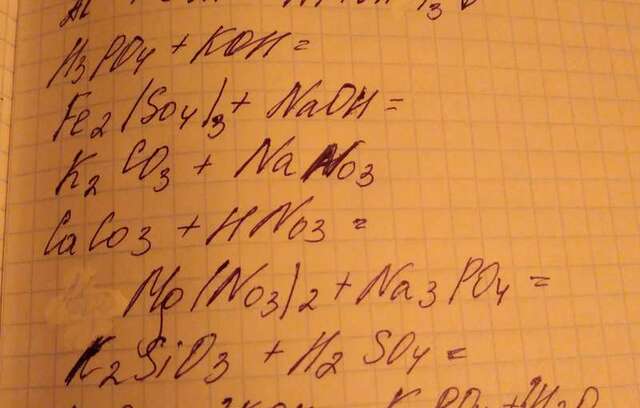 H3PO4 + KOH =
Fe2(SO4)3 + NaOH =
K2CO3 + NaNO3
CaCO3 + HNO3 =
Mg(NO3)2 + Na3PO4 =
K2SiO3 + H2SO4 =